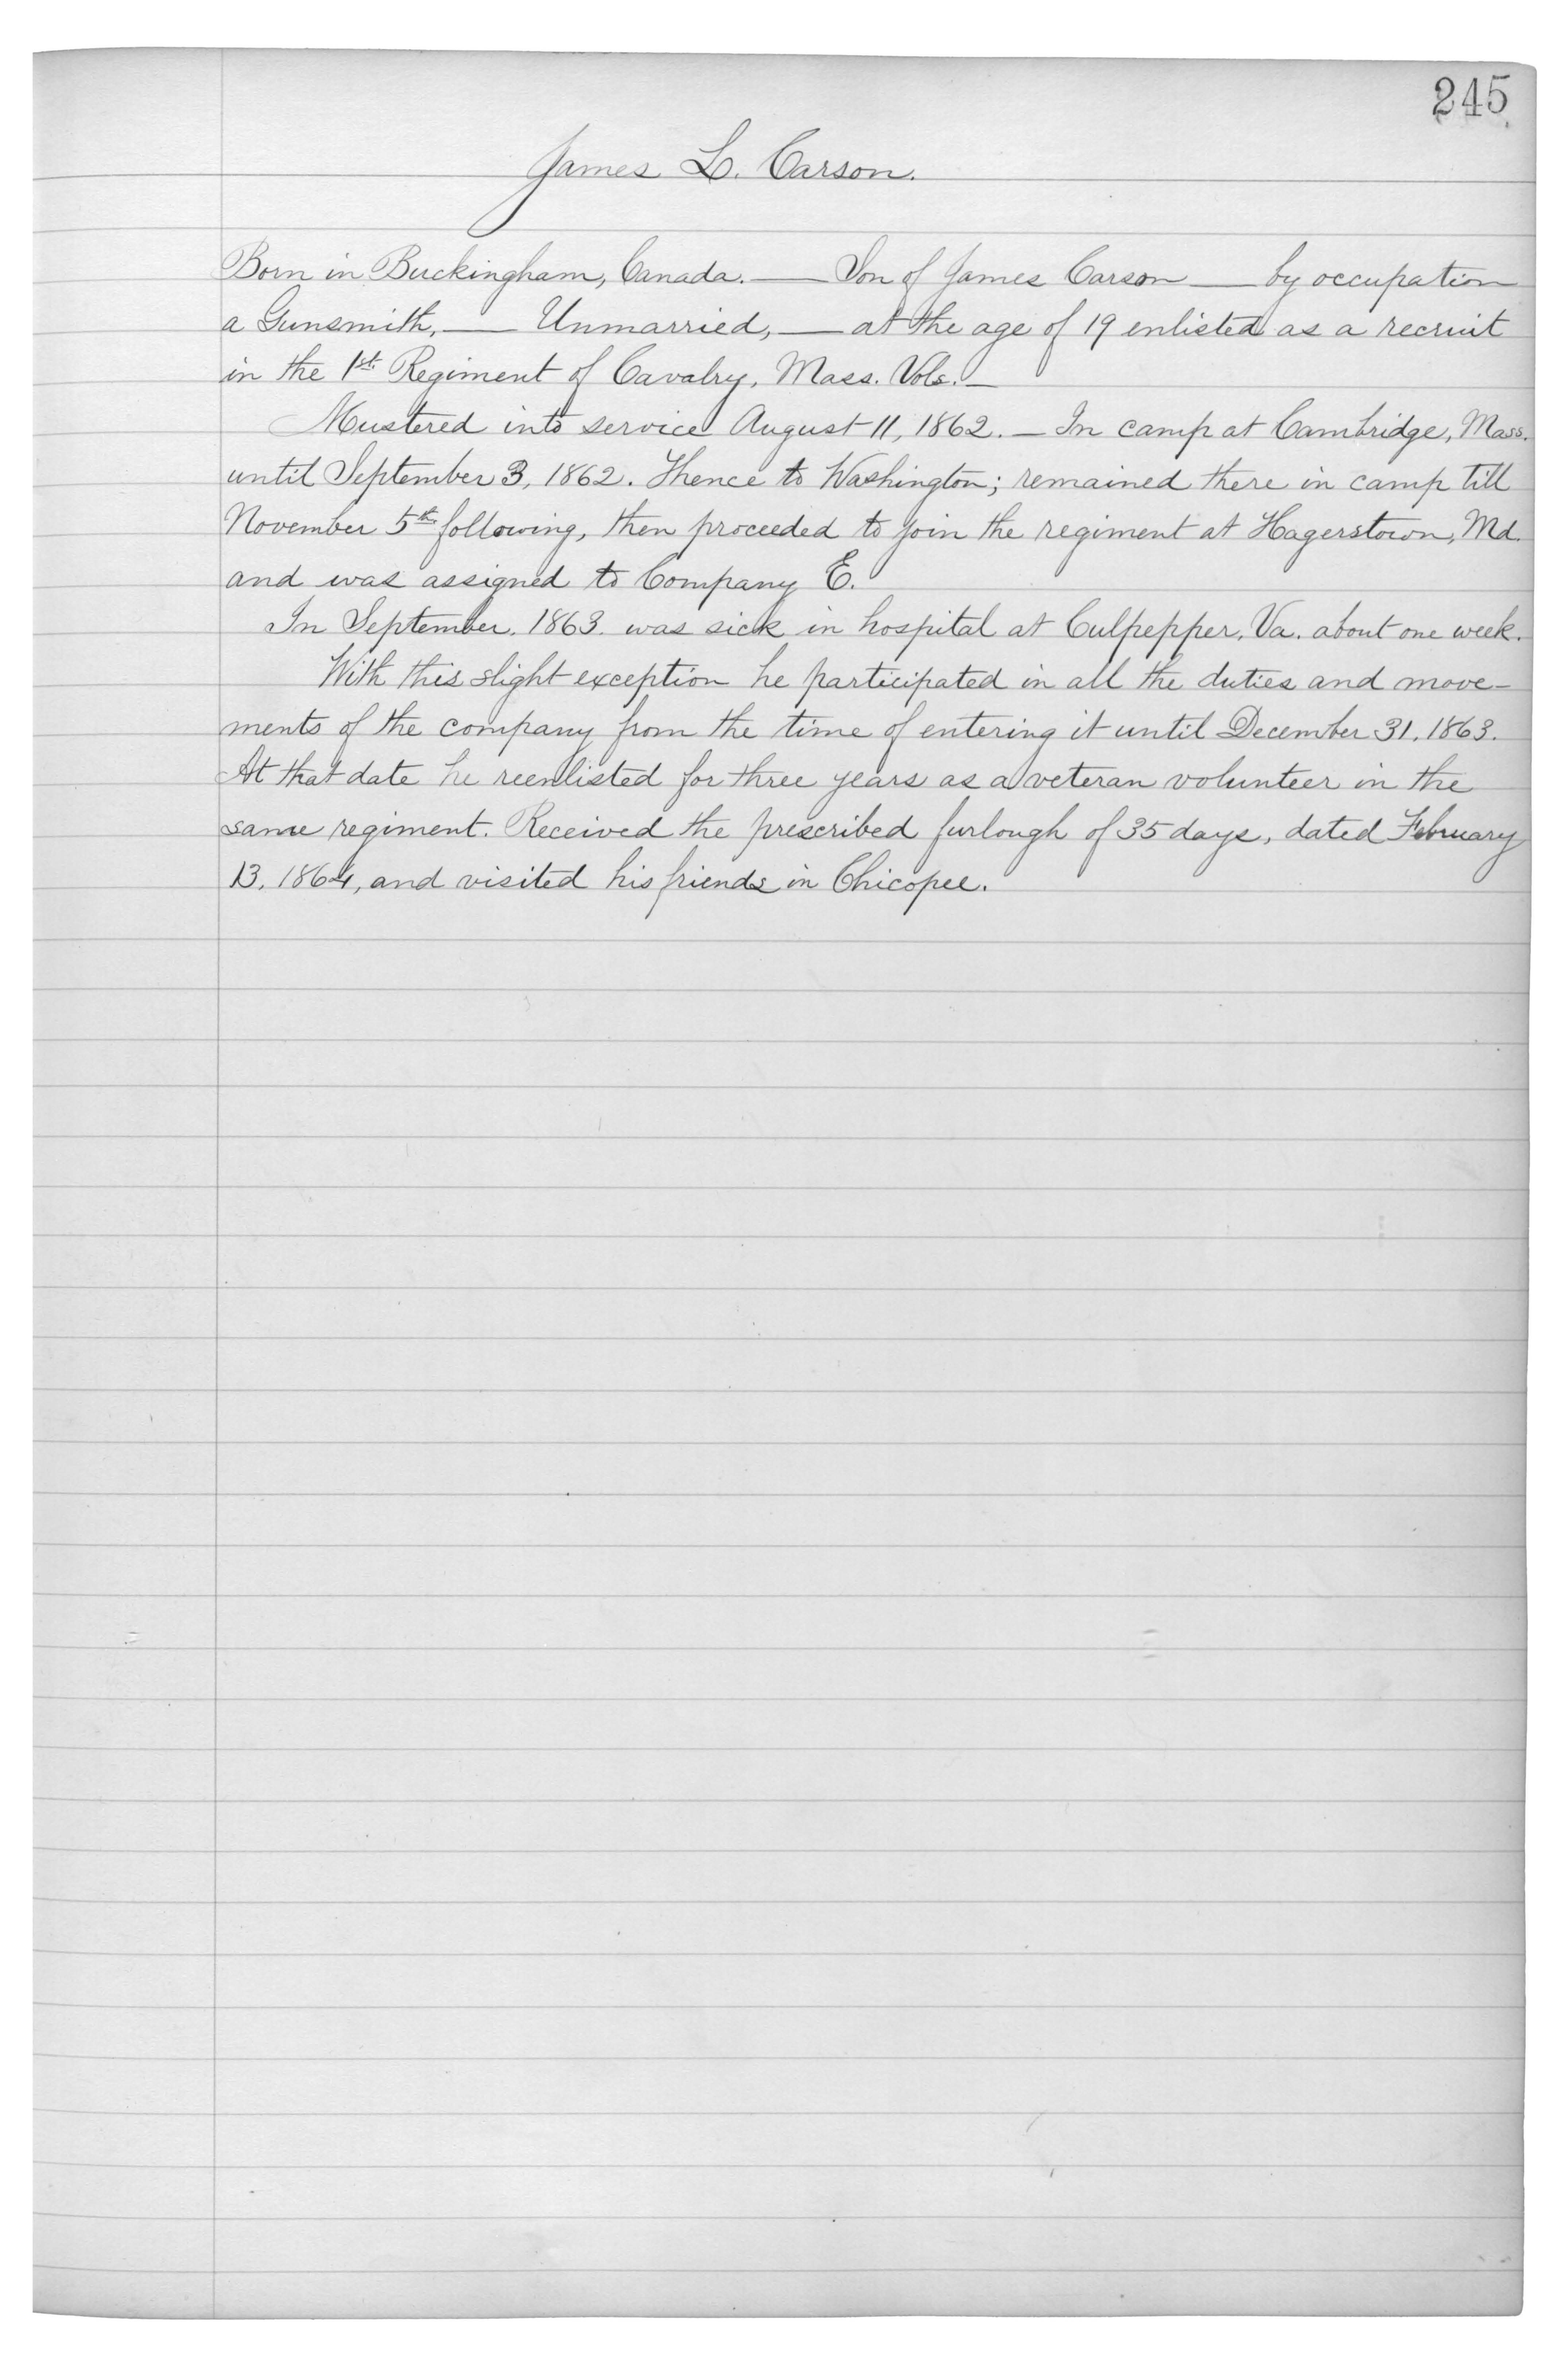 245
James L. Carson.
Born in Buckingham, Canada. — Son of James Carson — by occupation
a Gunsmith, — Unmarried, — at the age of 19 enlisted as a recruit
in the 1st Regiment of Cavalry, Mass. Vols. —
Mustered into service August 11, 1862. — In camp at Cambridge, Mass.
until September 3, 1862. Thence to Washington; remained there in camp till
November 5th following, then proceeded to join the regiment at Hagerstown, Md.
and was assigned to Company E.
In September, 1863. was sick in hospital at Culpepper, Va. about one week.
With this slight exception he participated in all the duties and move-
ments of the company from the time of entering it until December 31, 1863.
At that date he reenlisted for three years as a veteran volunteer in the
same regiment. Received the prescribed furlough of 35 days, dated February
13, 1864, and visited his friends in Chicopee.